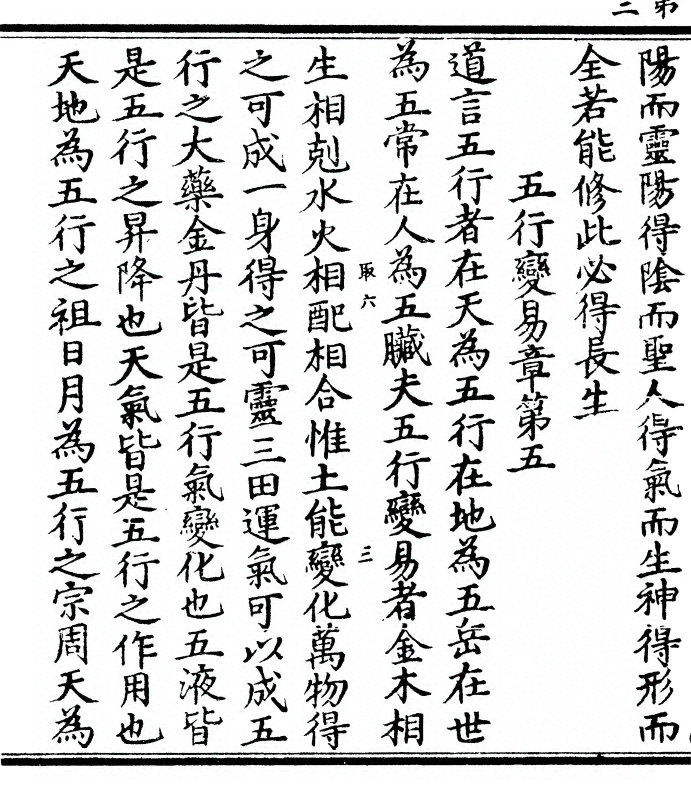 第二
陽而靈陽得陰而聖人得氣而生神得形而
全若能修此必得長生
五行變易章第五
道言五行者在天為五行在地為五岳在世
為五常在人為五臟夫五行變易者金木相
取六
三
生相剋水火相配相合惟土能變化萬物得
之可成一身得之可靈三田運氣可以成五
行之大藥金丹皆是五行氣變化也五液皆
是五行之昇降也天氣皆是五行之作用也
天地為五行之祖日月為五行之宗周天為